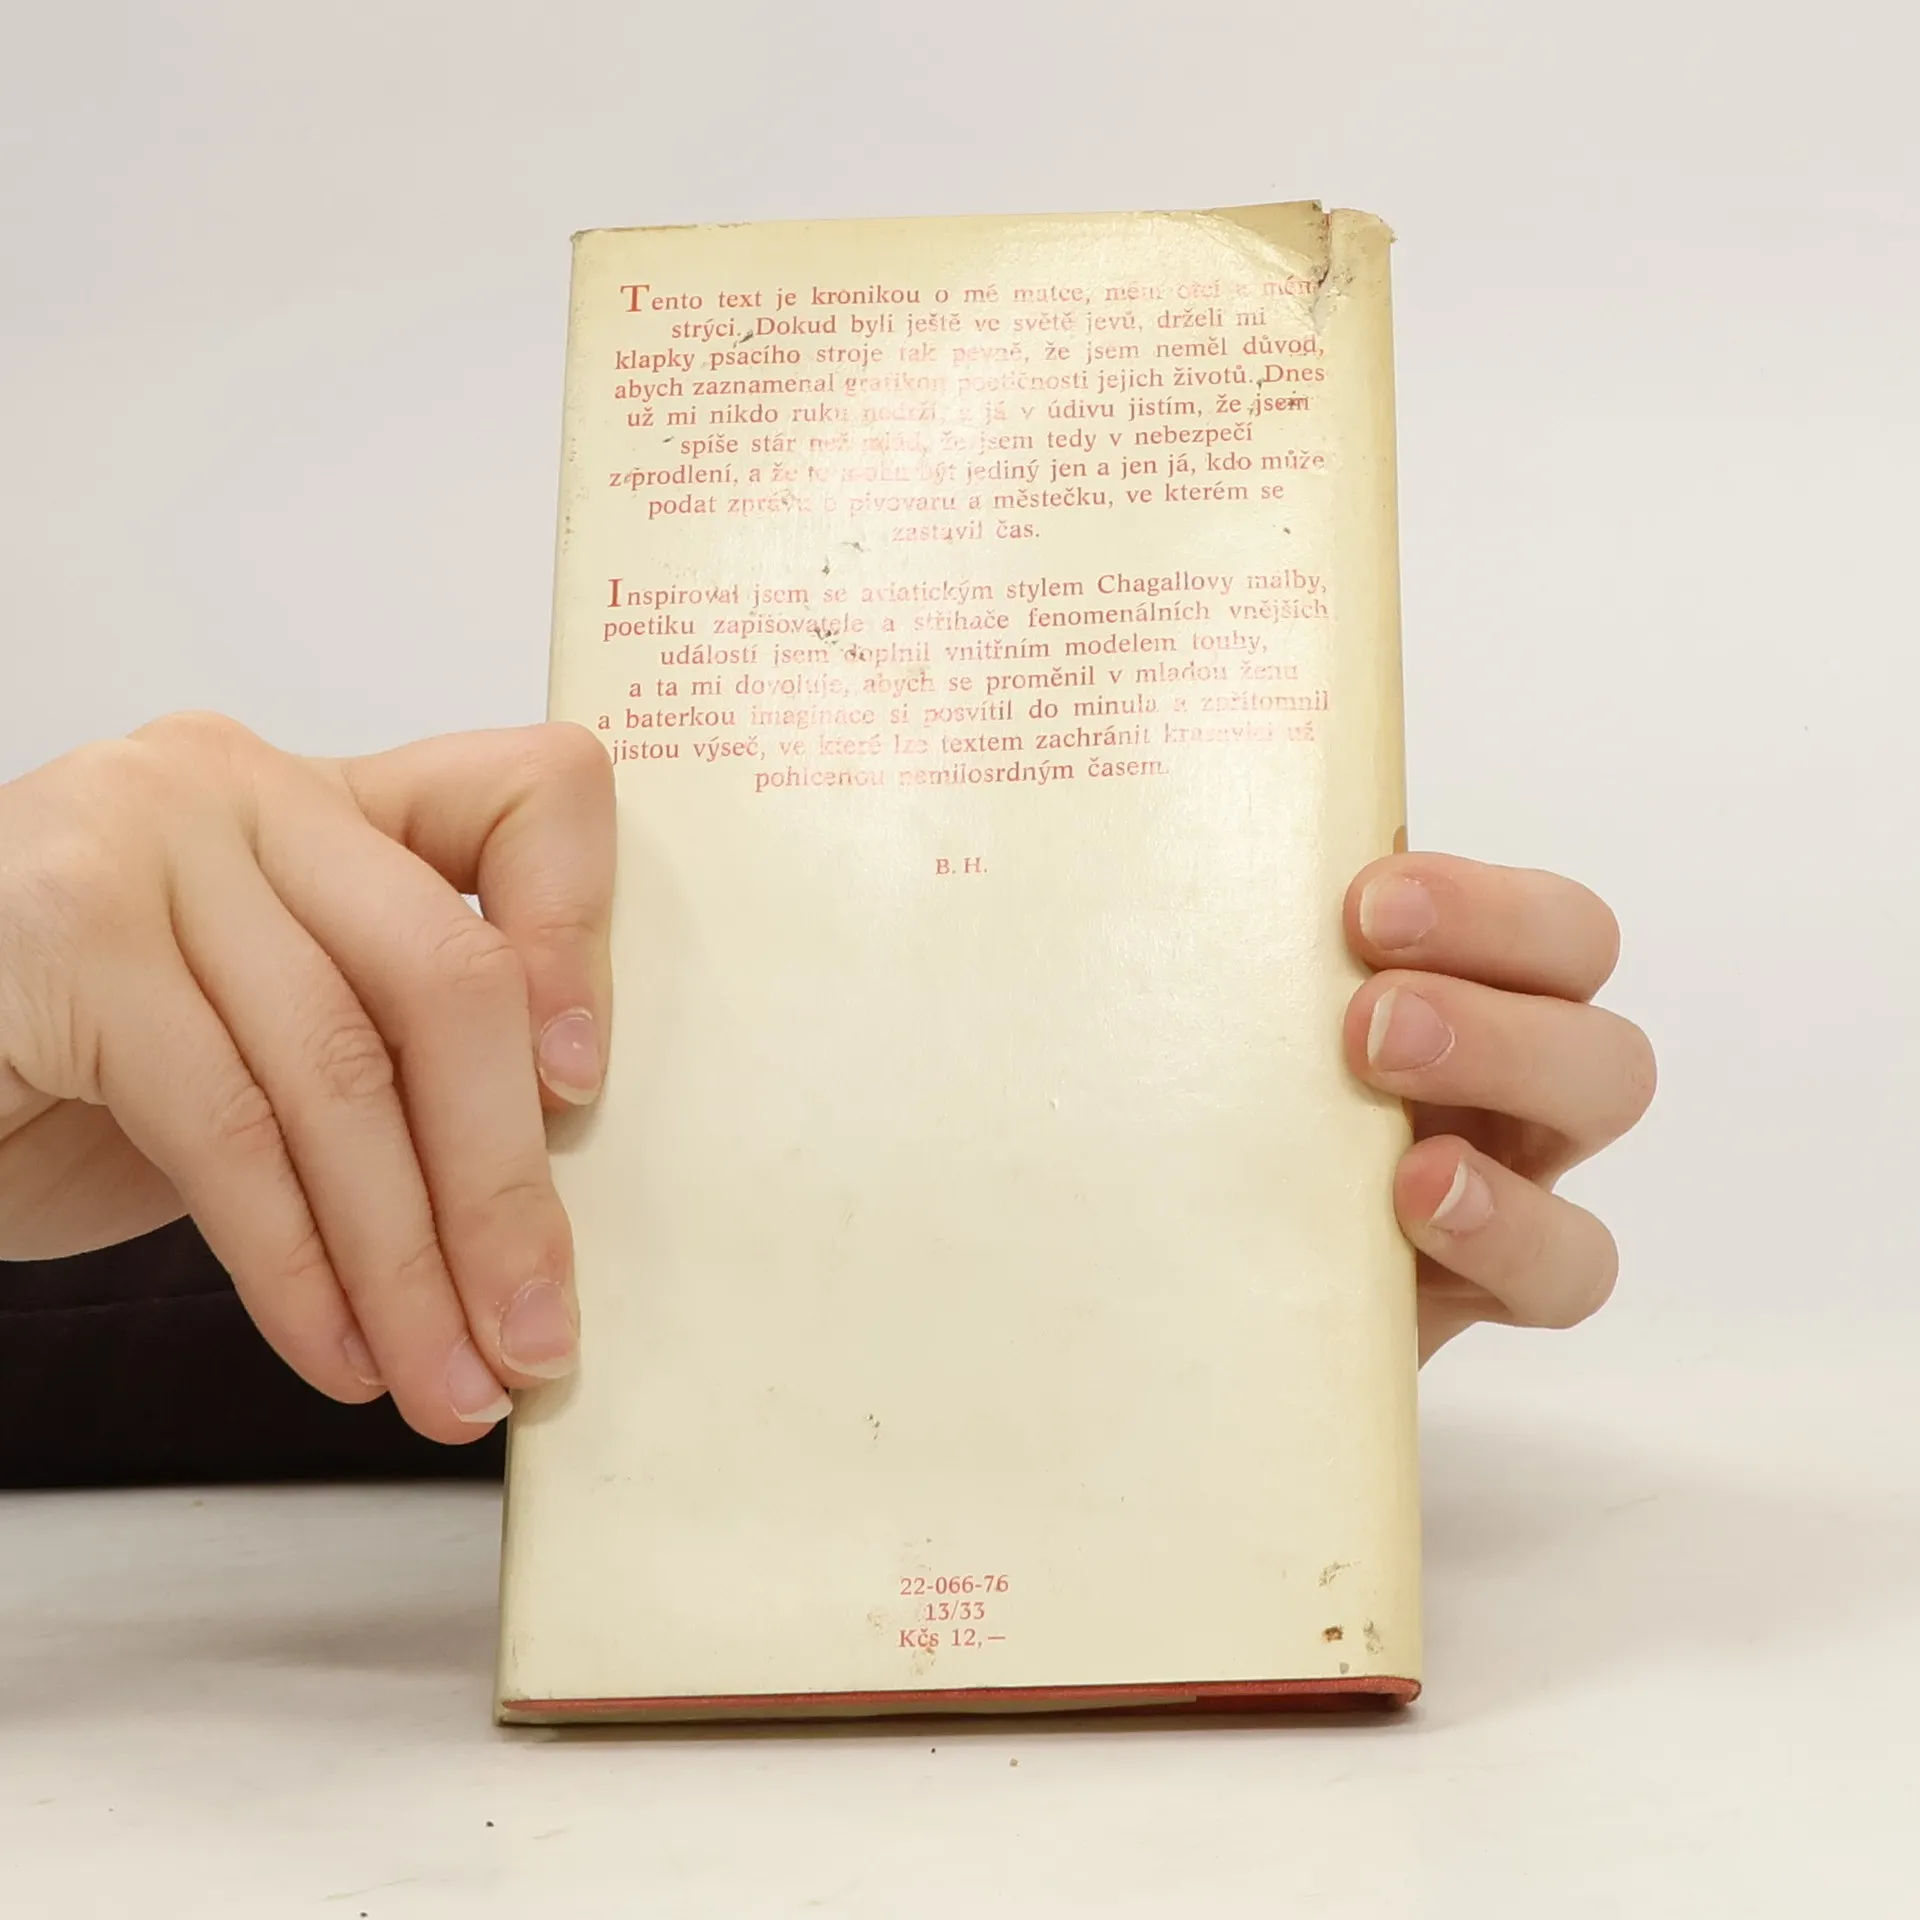 Tento text je kronikou o mé matce, mém otci a mém
strýci. Dokud byli ještě ve světě jevů, drželi mi
klapky psacího stroje tak pevně, že jsem neměl důvod,
abych zaznamenal grafikon poetičnosti jejich životů. Dnes
už mi nikdo ruku nedrží, a já v údivu jistím, že jsem
spíše stár než mlád, že jsem tedy v nebezpečí
z prodlení, a že to mohu být jediný jen a jen já, kdo může
podat zprávu o pivovaru a městečku, ve kterém se
zastavil čas.
Inspiroval jsem se aviatickým stylem Chagallovy malby,
poetiku zapisovatele a střihače fenomenálních vnějších
událostí jsem doplnil vnitřním modelem touhy,
a ta mi dovoluje, abych se proměnil v mladou ženu
a baterkou imaginace si posvítil do minula a zpřítomnil
jistou výseč, ve které lze textem zachránit krasavici už
pohlcenou nemilosrdným časem.
B. H.
22-066-76
13/33
Kčs 12,—